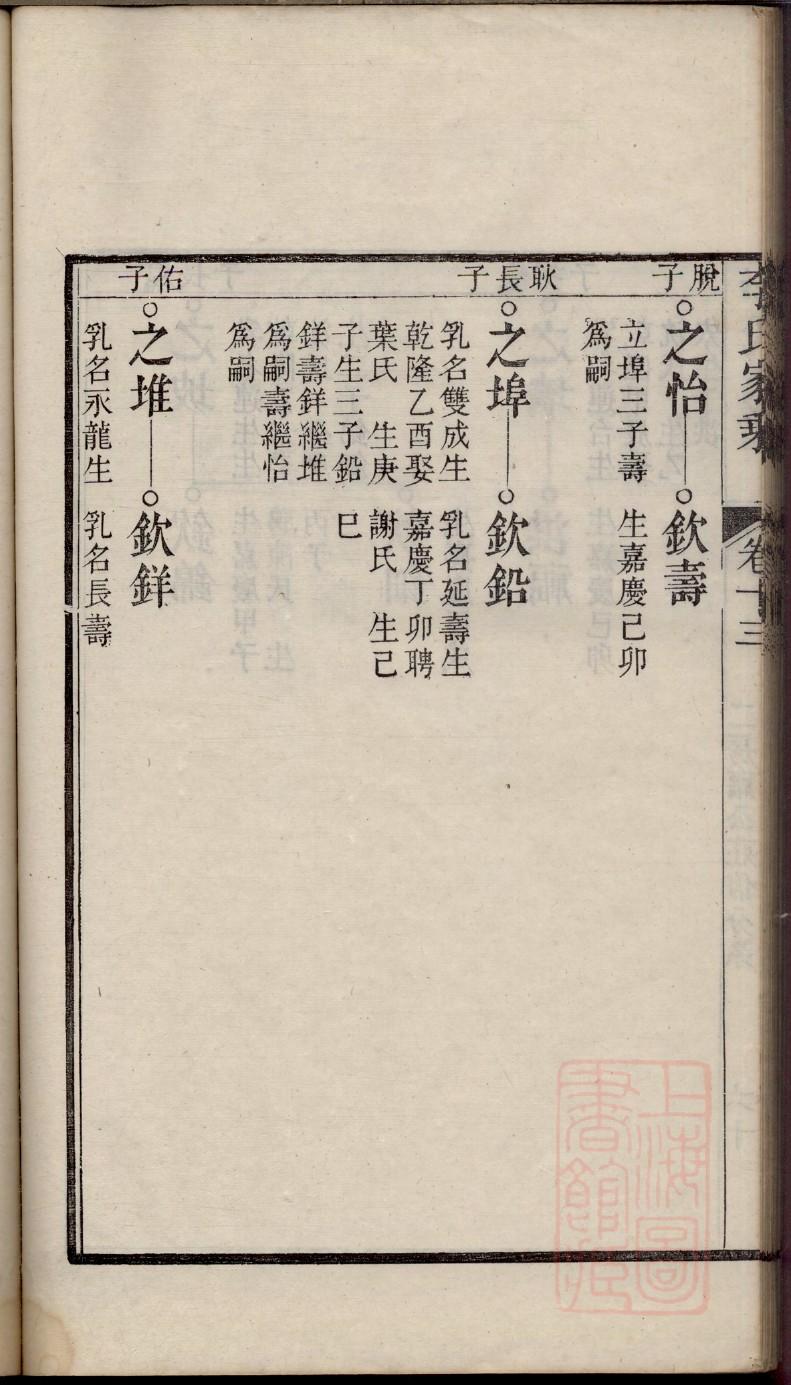 氏家乘
卷十三
脫子
之怡
立埠三子壽
爲嗣
欽壽
生嘉慶己卯
耿長子
之埠
乳名雙成生
乾隆乙酉娶
葉氏 生庚
子生三子鉛
鋅壽鋅繼堆
爲嗣壽繼怡
爲嗣
欽鉛
乳名延壽生
嘉慶丁卯聘
謝氏 生己
巳
佑子
之堆
乳名永龍生
欽鋅
乳名長壽
上海圖
書館藏